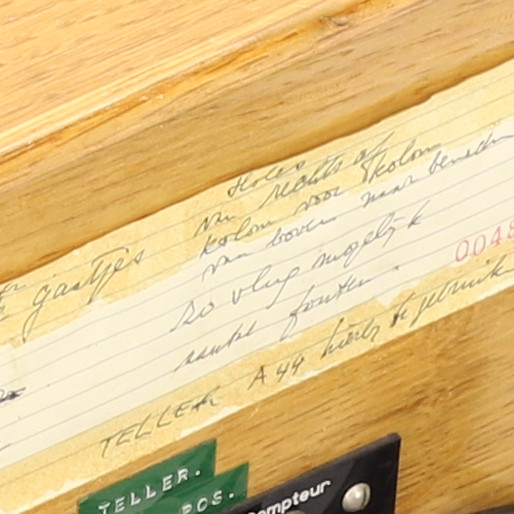 gaatjes
van rechts af
kolom voor kolom
van boven naar beneden
zo vlug mogelijk
aantal fouten.
0048
TELLER A44 hierb te gebruik
TELLER.
POS.
Compteur